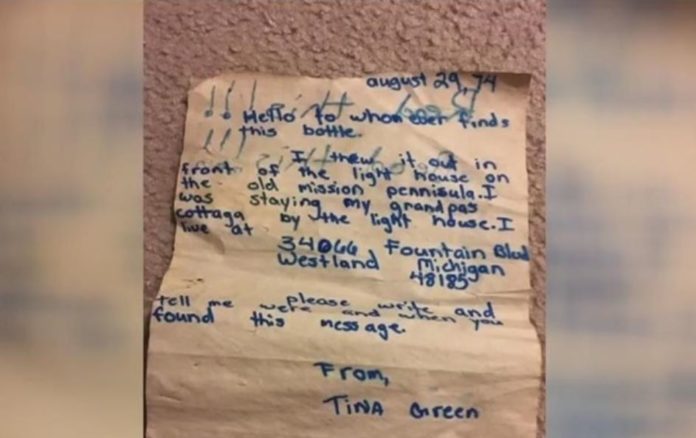 august 29, 74
!!! Hello to whom ever finds
this bottle.
!!!
I threw it out in
front of the light house on
the old mission pennisula. I
was staying my grandpas
cottage by the light house. I
live at
34066 Fountain Blvd
Westland Michigan
48185
please write and
tell me were and when you
found this message.
From,
TINA Green